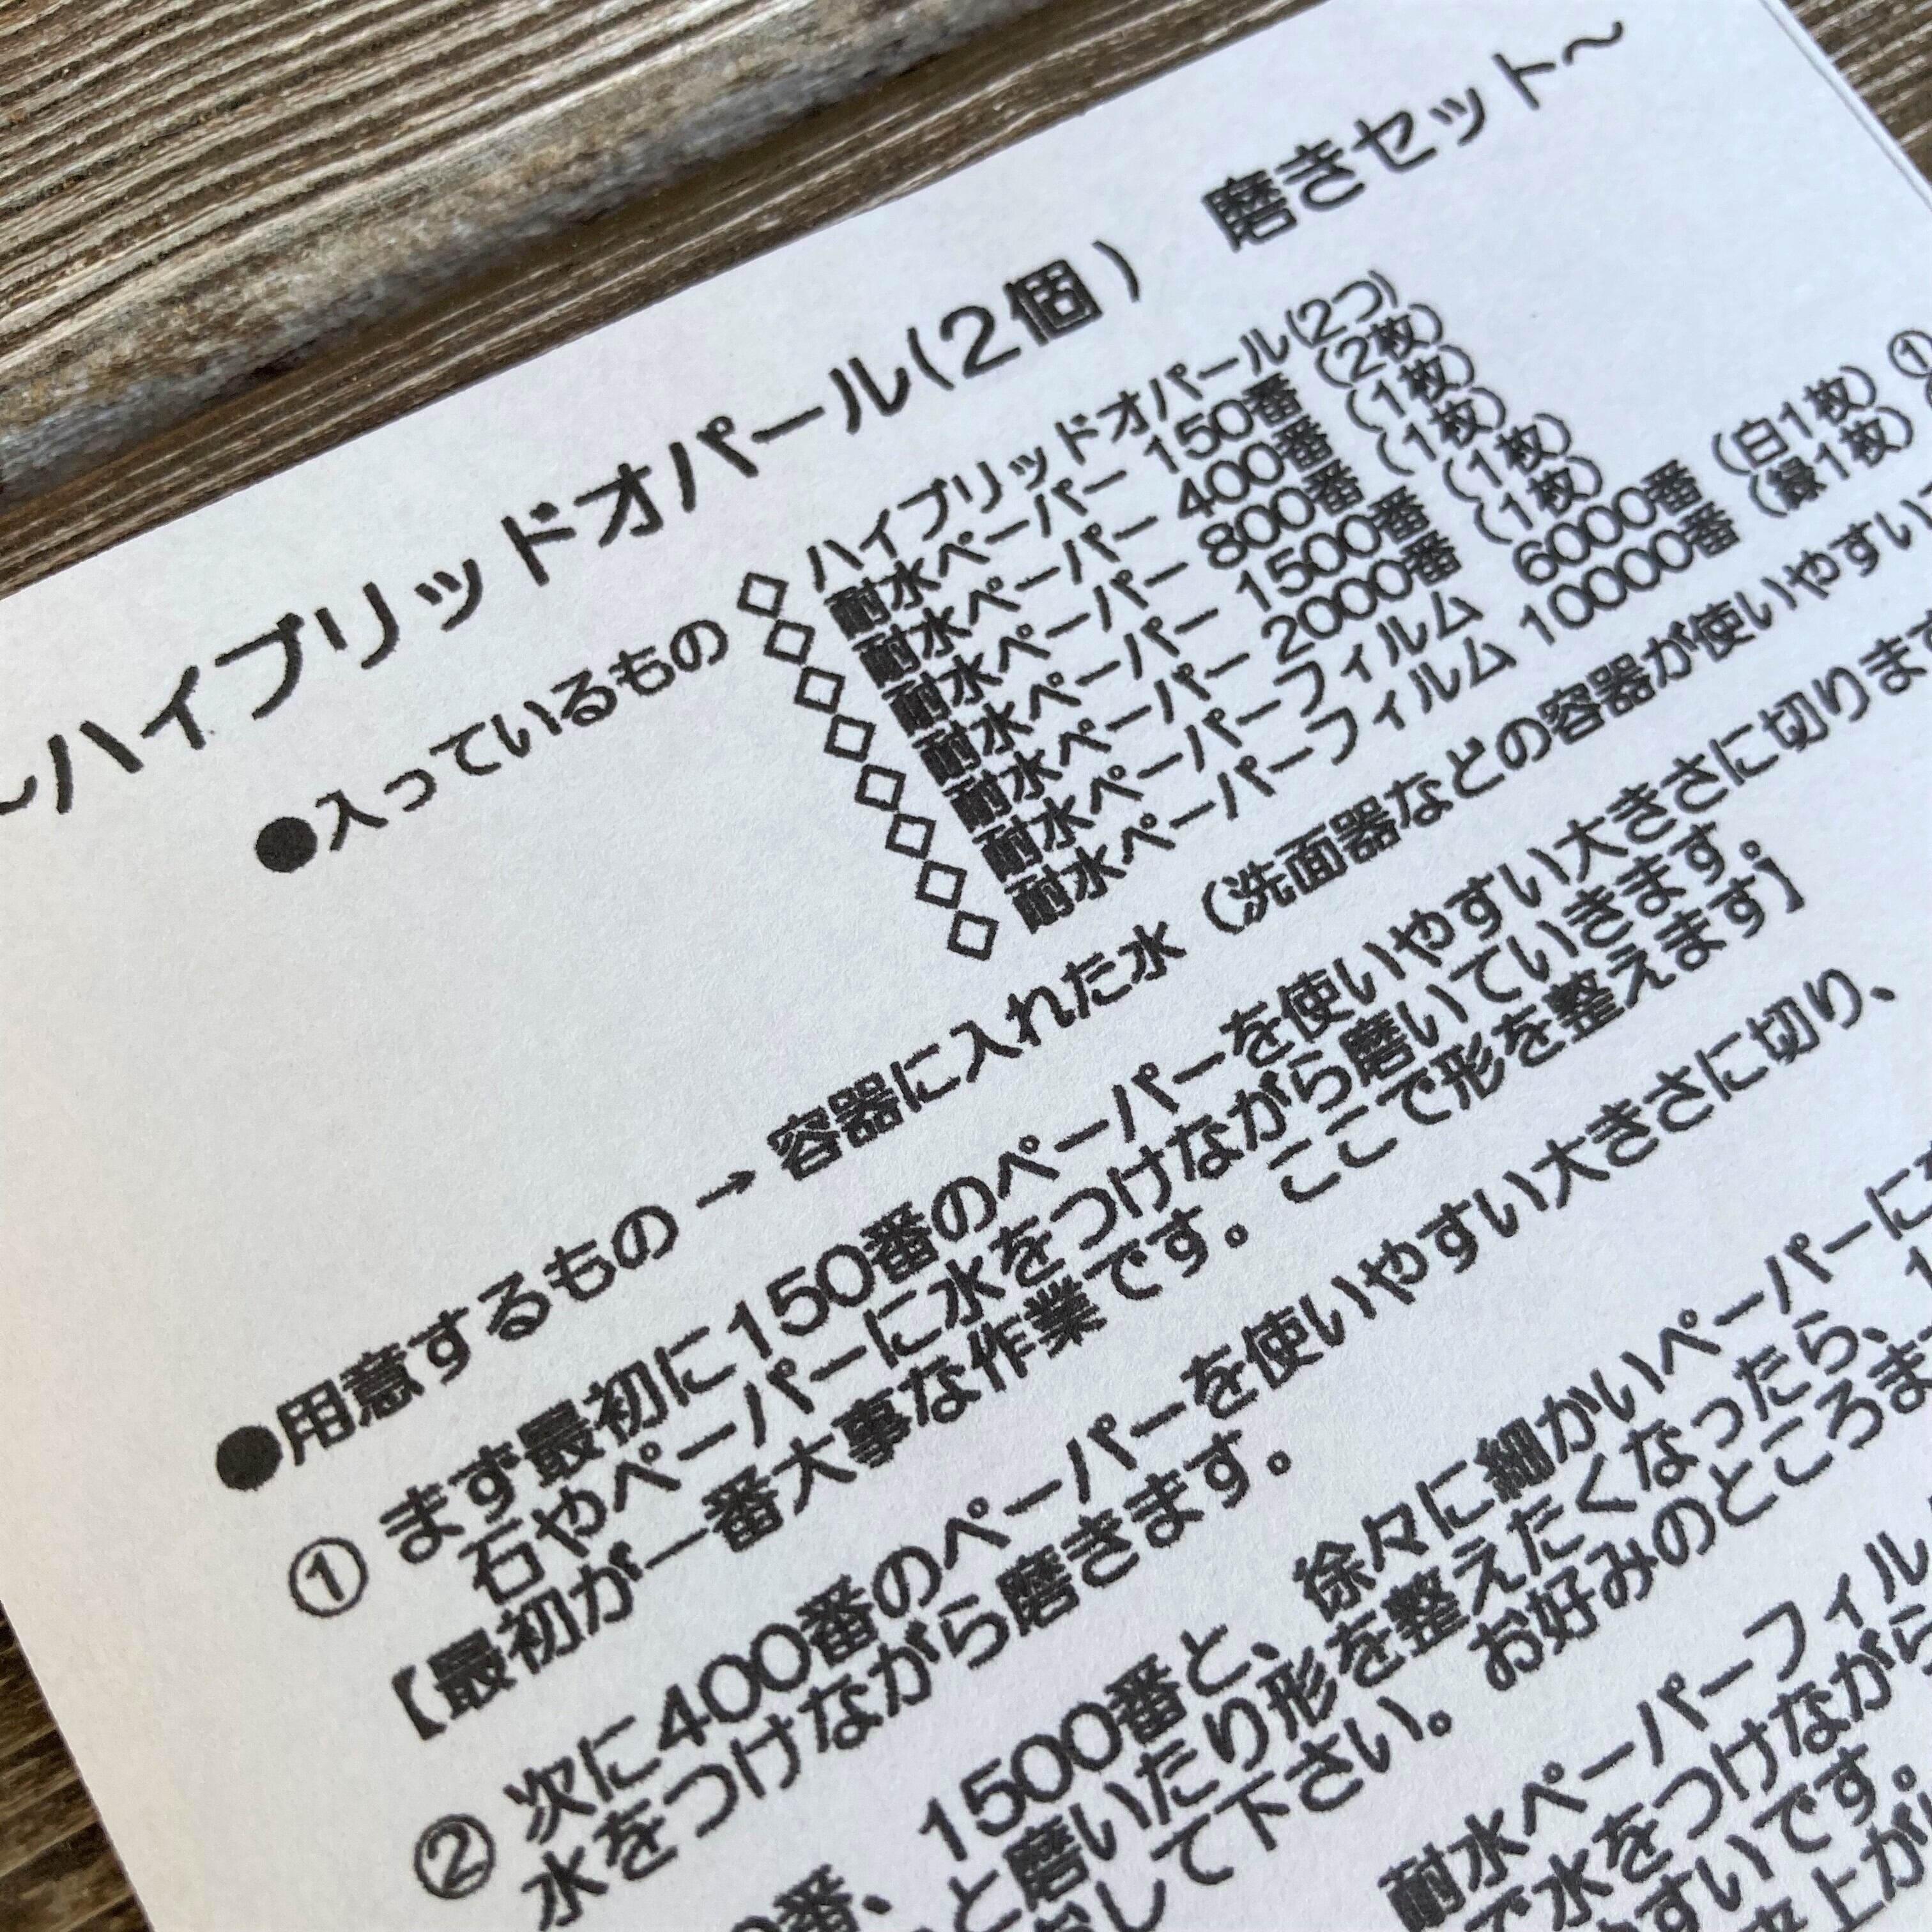 ～ハイブリッドオパール(２個)　磨きセット～
●入っているもの ◇ ハイブリッドオパール(2つ)
◇ 耐水ペーパー 150番 (2枚)
◇ 耐水ペーパー 400番 (1枚)
◇ 耐水ペーパー 800番 (1枚)
◇ 耐水ペーパー 1500番 (1枚)
◇ 耐水ペーパー 2000番 (1枚)
◇ 耐水ペーパーフィルム 6000番 (白1枚) ①
◇ 耐水ペーパーフィルム 10000番 (緑1枚)
●用意するもの → 容器に入れた水 (洗面器などの容器が使いやすい
① まず最初に150番のペーパーを使いやすい大きさに切りま
石やペーパーに水をつけながら磨いていきます。
【最初が一番大事な作業です。ここで形を整えます】
② 次に400番のペーパーを使いやすい大きさに切り、
水をつけながら磨きます。
番、1500番と、徐々に細かいペーパーに
と磨いたり形を整えたくなったら、
して下さい。お好みのところま
耐水ペーパーフィル
で水をつけながら
やすいです。
上が